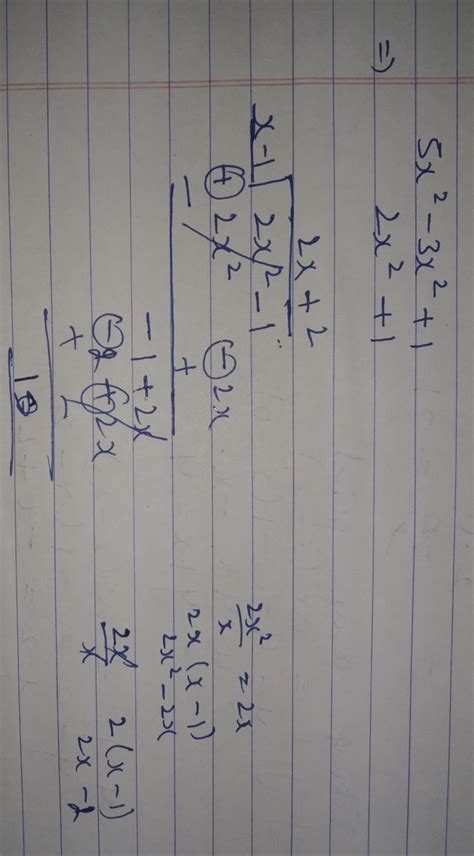 5x² - 3x² + 1
=) 2x² + 1
2x + 2
x - 1 2x² - 1
⊕ 2x² ⊖ 2x
- +
- 1 + 2x
⊖ 2 ⊕ 2x
+ -
1
2x²/x = 2x
2x(x - 1)
2x² - 2x
2x/x 2(x - 1)
2x - 2